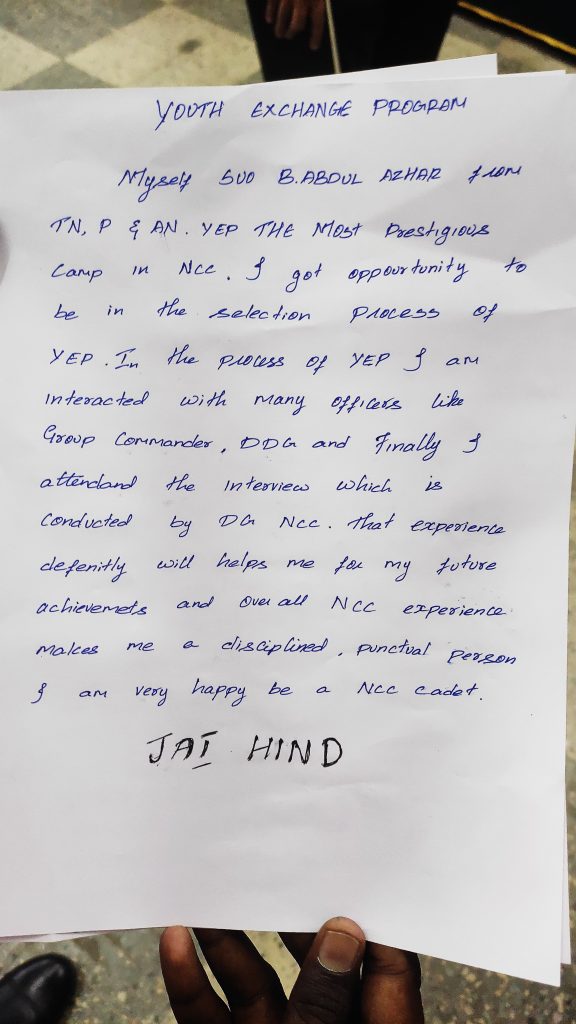 YOUTH EXCHANGE PROGRAM
Myself SUO B.ABDUL AZHAR from
TN, P & AN. YEP THE Most Prestigious
Camp in NCC. I got oppourtunity to
be in the selection process of
YEP. In the process of YEP I am
interacted with many officers like
Group Commander, DDG and Finally I
attendand the interview which is
Conducted by DG NCC. That experience
defenitly will helps me for my future
achievemets and over all NCC experience
makes me a disciplined, punctual person
I am very happy be a NCC cadet.
JAI HIND